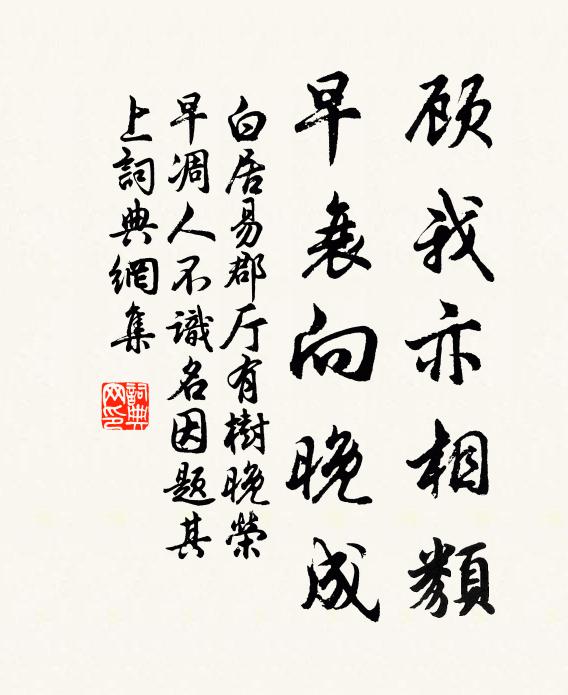 顾我亦相類
早衰向晚成
白居易郡厅有樹晚榮
早凋人不識名因题其
上詞典網集
詞典
网印